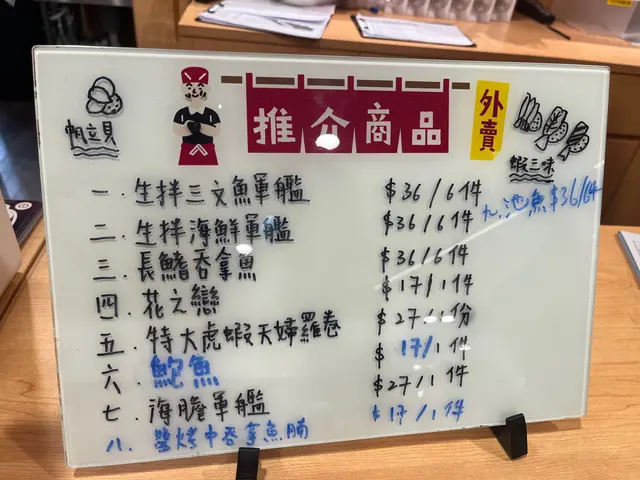 推介商品
外賣
帆立貝
蝦三味
一. 生拌三文魚軍艦 $36/6件
二. 生拌海鮮軍艦 $36/6件
三. 長鰭吞拿魚 $36/6件
四. 花之戀 $17/1件
五. 特大虎蝦天婦羅卷 $27/1份
六. 鮑魚 $17/1件
七. 海膽軍艦 $27/1件
八. 醬烤中吞拿魚腩 $17/1件
九. 池魚 $36/6件